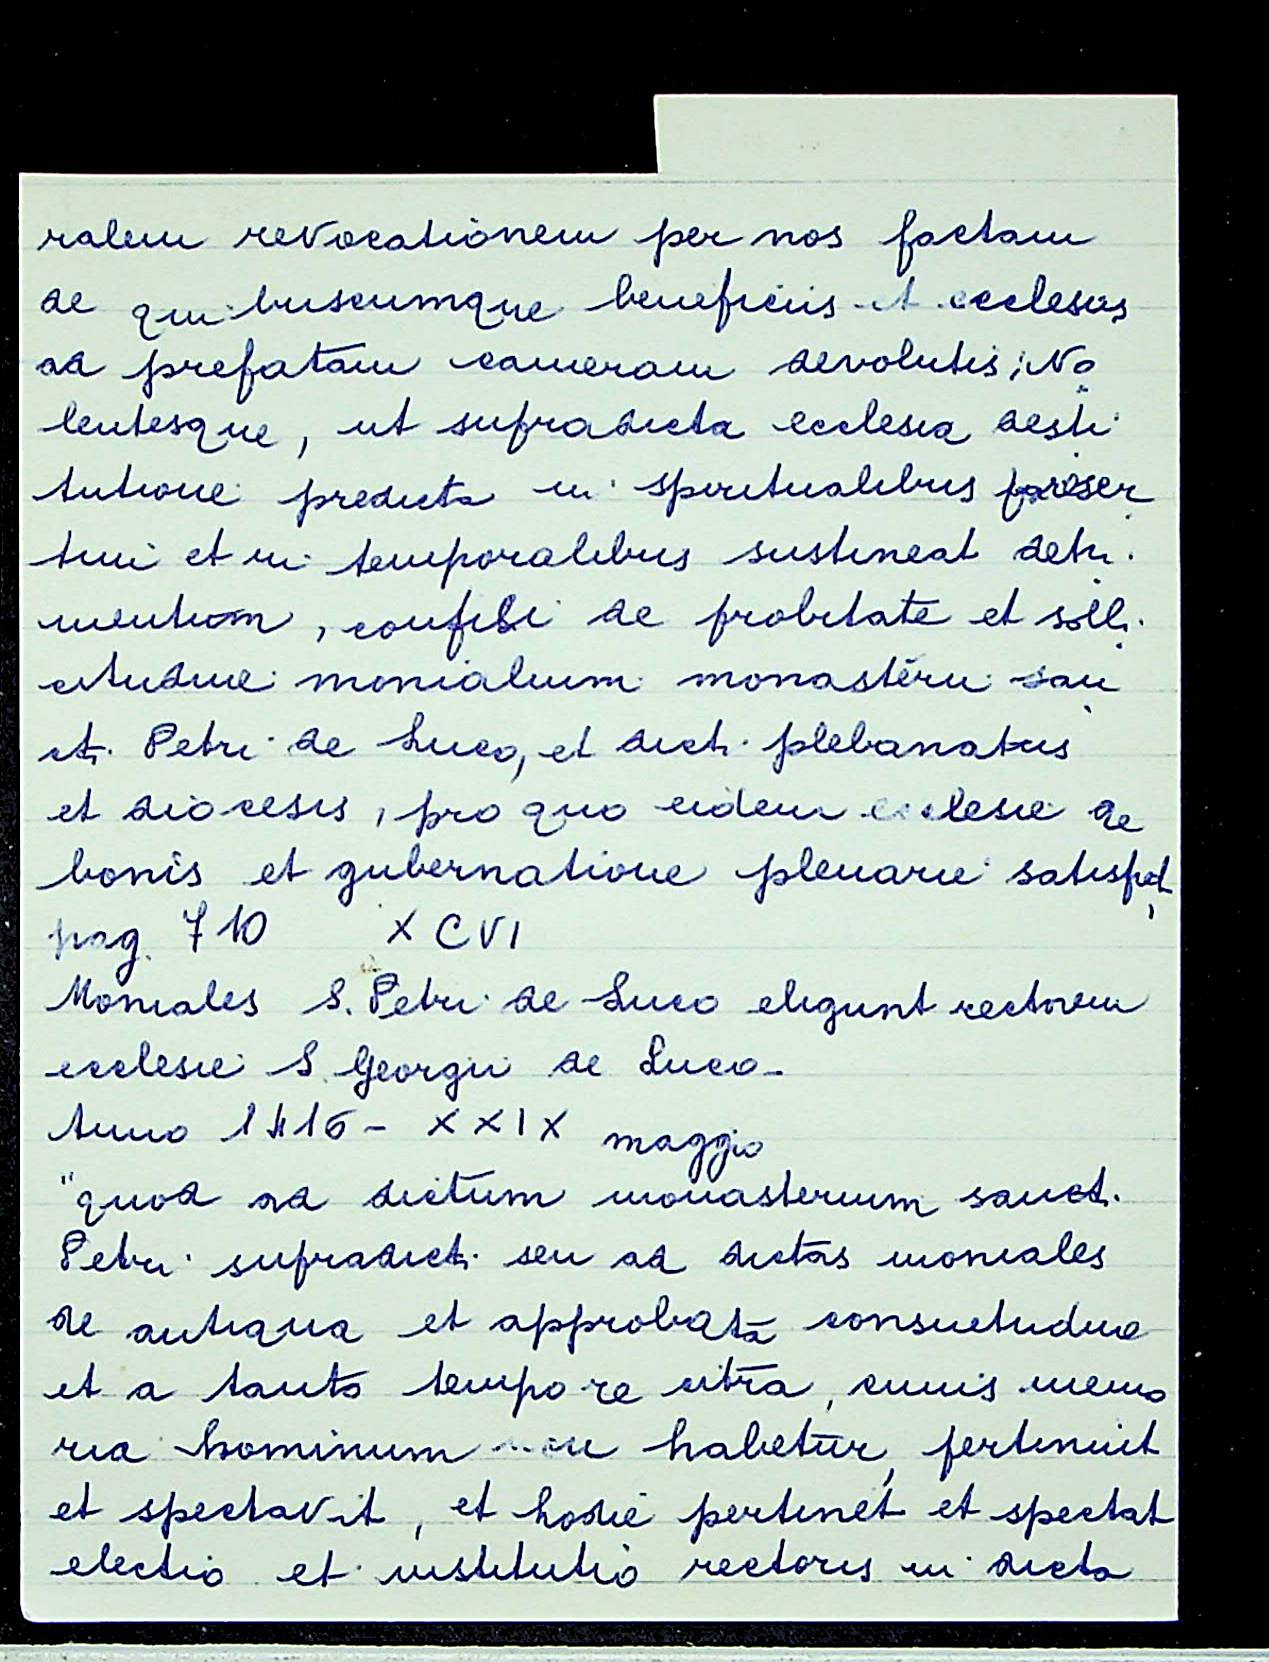 ralem revocationem per nos factam
de quibuscumque beneficiis et ecclesiis
ad prefatam cameram devolutis; No
lentesque, ut supradicta ecclesia desti
tutione predicta in spiritualibus preser
tim et in temporalibus sustineat detri
mentum, confisi de probitate et solli
citudine monialium monasterii san
cti Petri de Luco, et dicti plebanatus
et diocesis, pro quo eidem ecclesie de
bonis et gubernatione plenarie satisfiet,
pag. 710 XCVI
Moniales S. Petri de Luco eligunt rectorem
ecclesie S. Georgii de Luco-
Anno 1416 - XXIX maggio
"quod ad dictum monasterium sancti
Petri supradicti seu ad dictas moniales
de antiqua et approbata consuetudine
et a tanto tempore citra, cuius memo
ria hominum non habetur, pertinuit
et spectavit, et hodie pertinet et spectat
electio et institutio rectoris in dicta